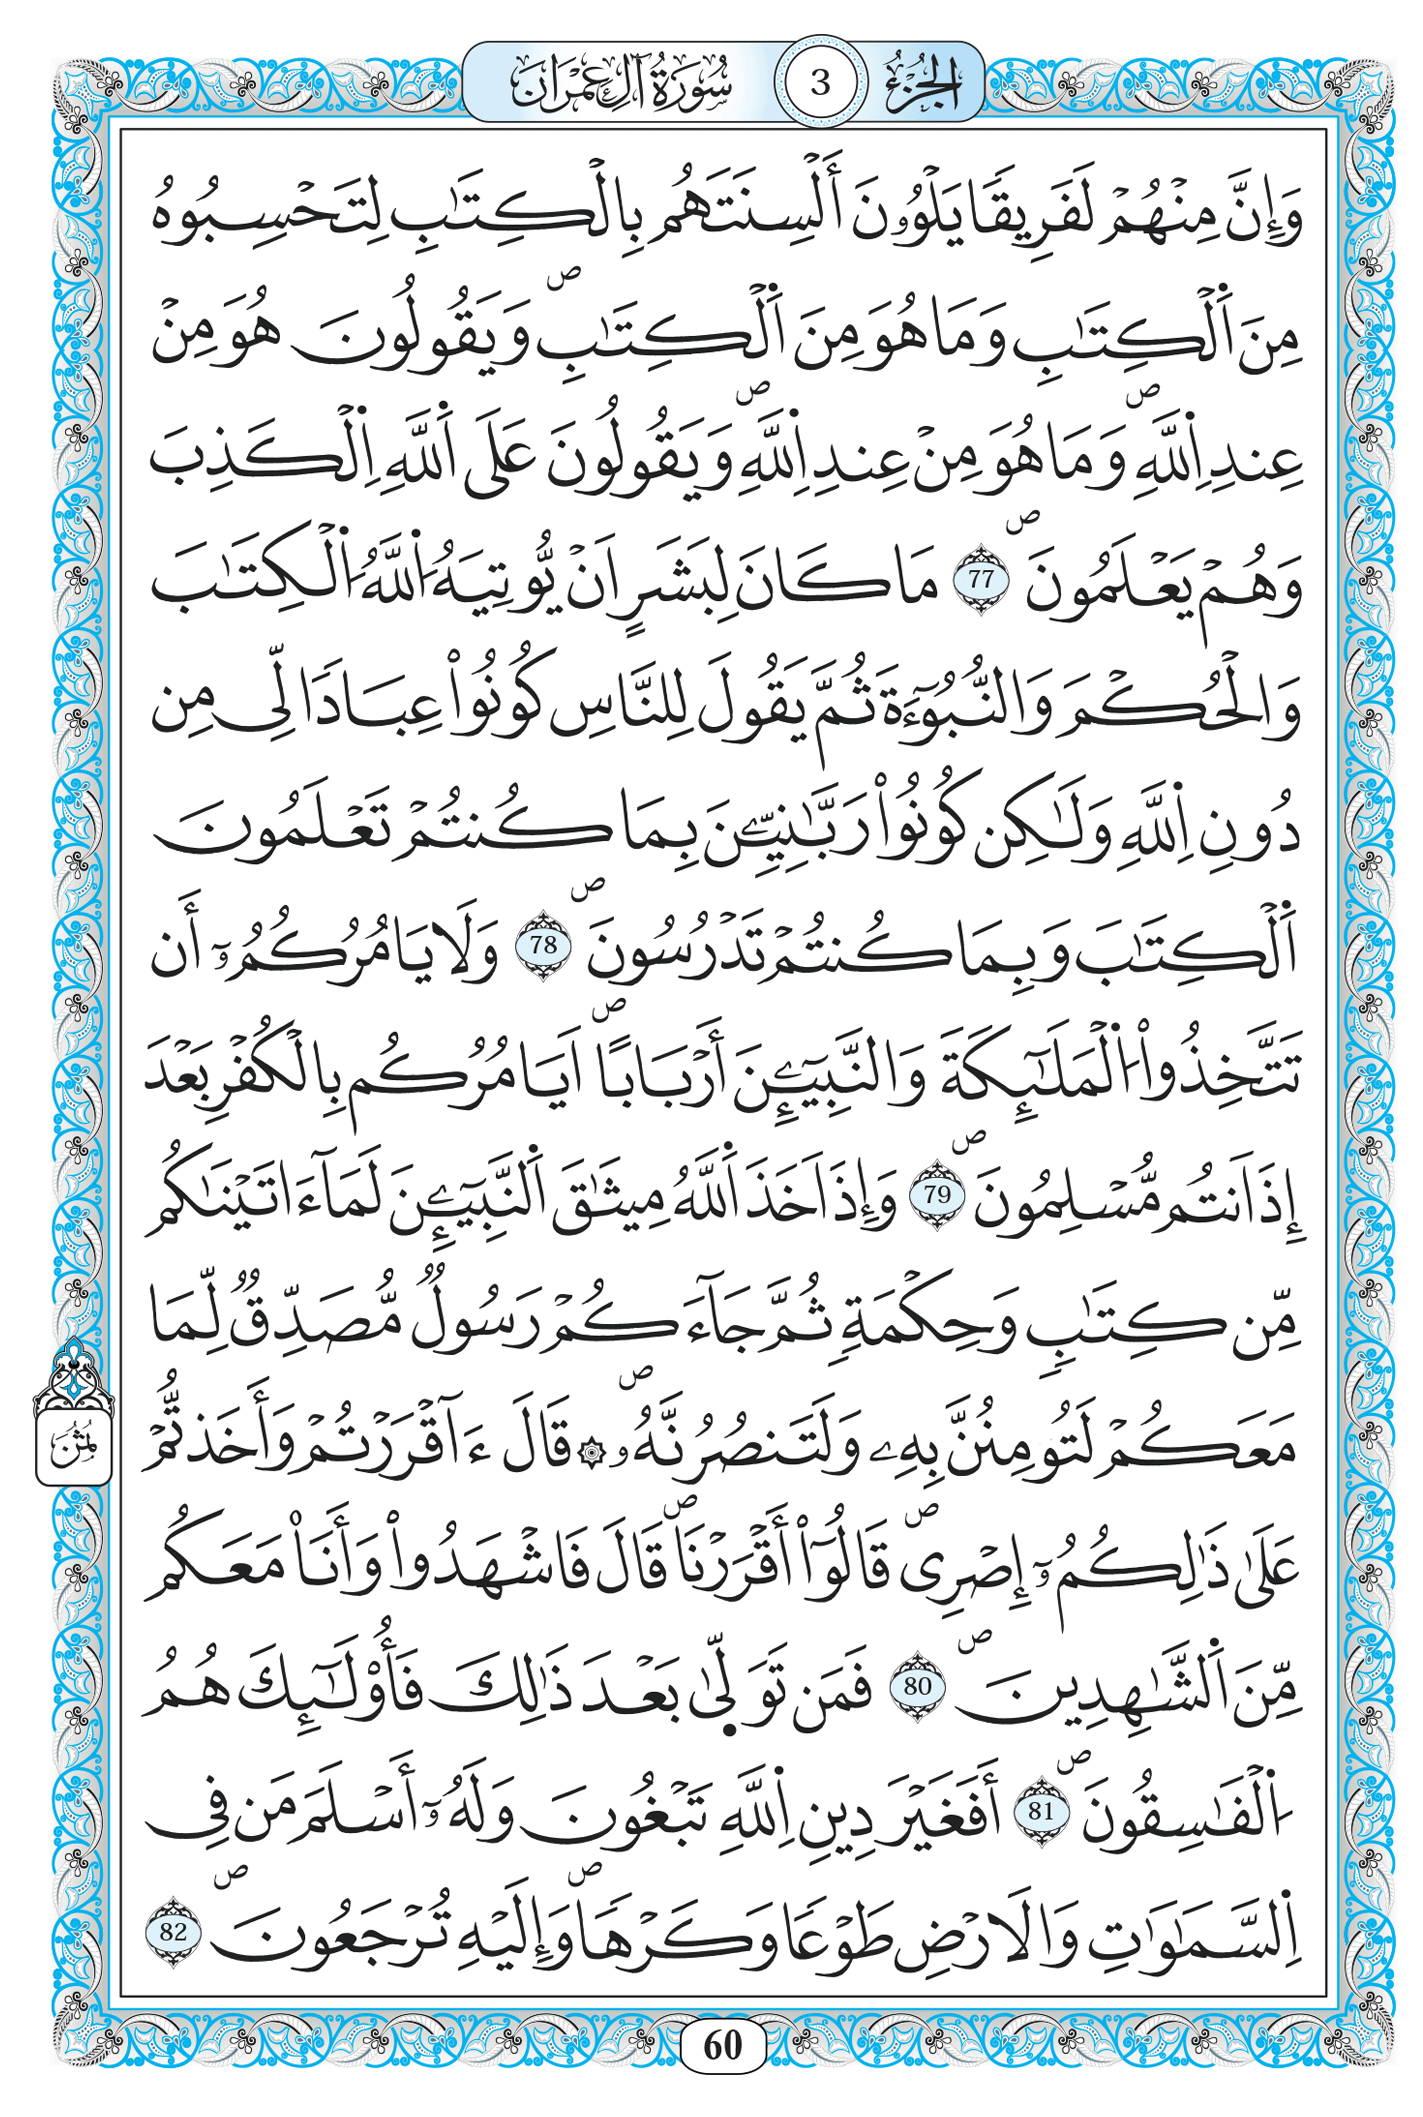 الجزء 3 سورة آل عمران
وَإِنَّ مِنْهُمْ لَفَرِيقًا يَلْوُۥنَ أَلْسِنَتَهُم بِالْكِتَٰبِ لِتَحْسِبُوهُ
مِنَ اَ۬لْكِتَٰبِ وَمَا هُوَ مِنَ اَ۬لْكِتَٰبِۖ وَيَقُولُونَ هُوَ مِنْ
عِندِ اِ۬للَّهِۖ وَمَا هُوَ مِنْ عِندِ اِ۬للَّهِۖ وَيَقُولُونَ عَلَى اَ۬للَّهِ اِ۬لْكَذِبَ
وَهُمْ يَعْلَمُونَۖ 77 مَا كَانَ لِبَشَرٍ اَنْ يُّوتِيَهُ اُ۬للَّهُ اُ۬لْكِتَٰبَ
وَالْحُكْمَ وَالنُّبُوٓءَةَ ثُمَّ يَقُولَ لِلنَّاسِ كُونُواْ عِبَادًا لِّى مِن
دُونِ اِ۬للَّهِ وَلَٰكِن كُونُواْ رَبَّٰنِيِّۦنَ بِمَا كُنتُمْ تَعْلَمُونَ
اَ۬لْكِتَٰبَ وَبِمَا كُنتُمْ تَدْرُسُونَۖ 78 وَلَا يَامُرُكُمُۥٓ أَن
تَتَّخِذُواْ اُ۬لْمَلَٰٓئِكَةَ وَالنَّبِيٓـِٕۧنَ أَرْبَابًاۖ اَيَامُرُكُم بِالْكُفْرِ بَعْدَ
إِذَ اَنتُم مُّسْلِمُونَۖ 79 وَإِذَ اَخَذَ اَ۬للَّهُ مِيثَٰقَ اَ۬لنَّبِيٓـِٕۧنَ لَمَآ ءَاتَيْنَٰكُم
مِّن كِتَٰبٍ وَحِكْمَةٍ ثُمَّ جَآءَكُمْ رَسُولٌ مُّصَدِّقٌ لِّمَا
مَعَكُمْ لَتُومِنُنَّ بِهِۦ وَلَتَنصُرُنَّهُۥۖ ۞ قَالَ ءَآقْرَرْتُمْ وَأَخَذتُّمْ
عَلَىٰ ذَٰلِكُمُۥٓ إِصْرِىۖ قَالُوٓاْ أَقْرَرْنَاۖ قَالَ فَاشْهَدُواْ وَأَنَا۠ مَعَكُم
مِّنَ اَ۬لشَّٰهِدِينَۖ 80 فَمَن تَوَلّ۪ىٰ بَعْدَ ذَٰلِكَ فَأُوْلَٰٓئِكَ هُمُ
اُ۬لْفَٰسِقُونَۖ 81 أَفَغَيْرَ دِينِ اِ۬للَّهِ تَبْغُونَ وَلَهُۥٓ أَسْلَمَ مَن فِى
اِ۬لسَّمَٰوَٰتِ وَالَارْضِ طَوْعًا وَكَرْهًاۖ وَإِلَيْهِ تُرْجَعُونَۖ 82
ثُمُنَ
60